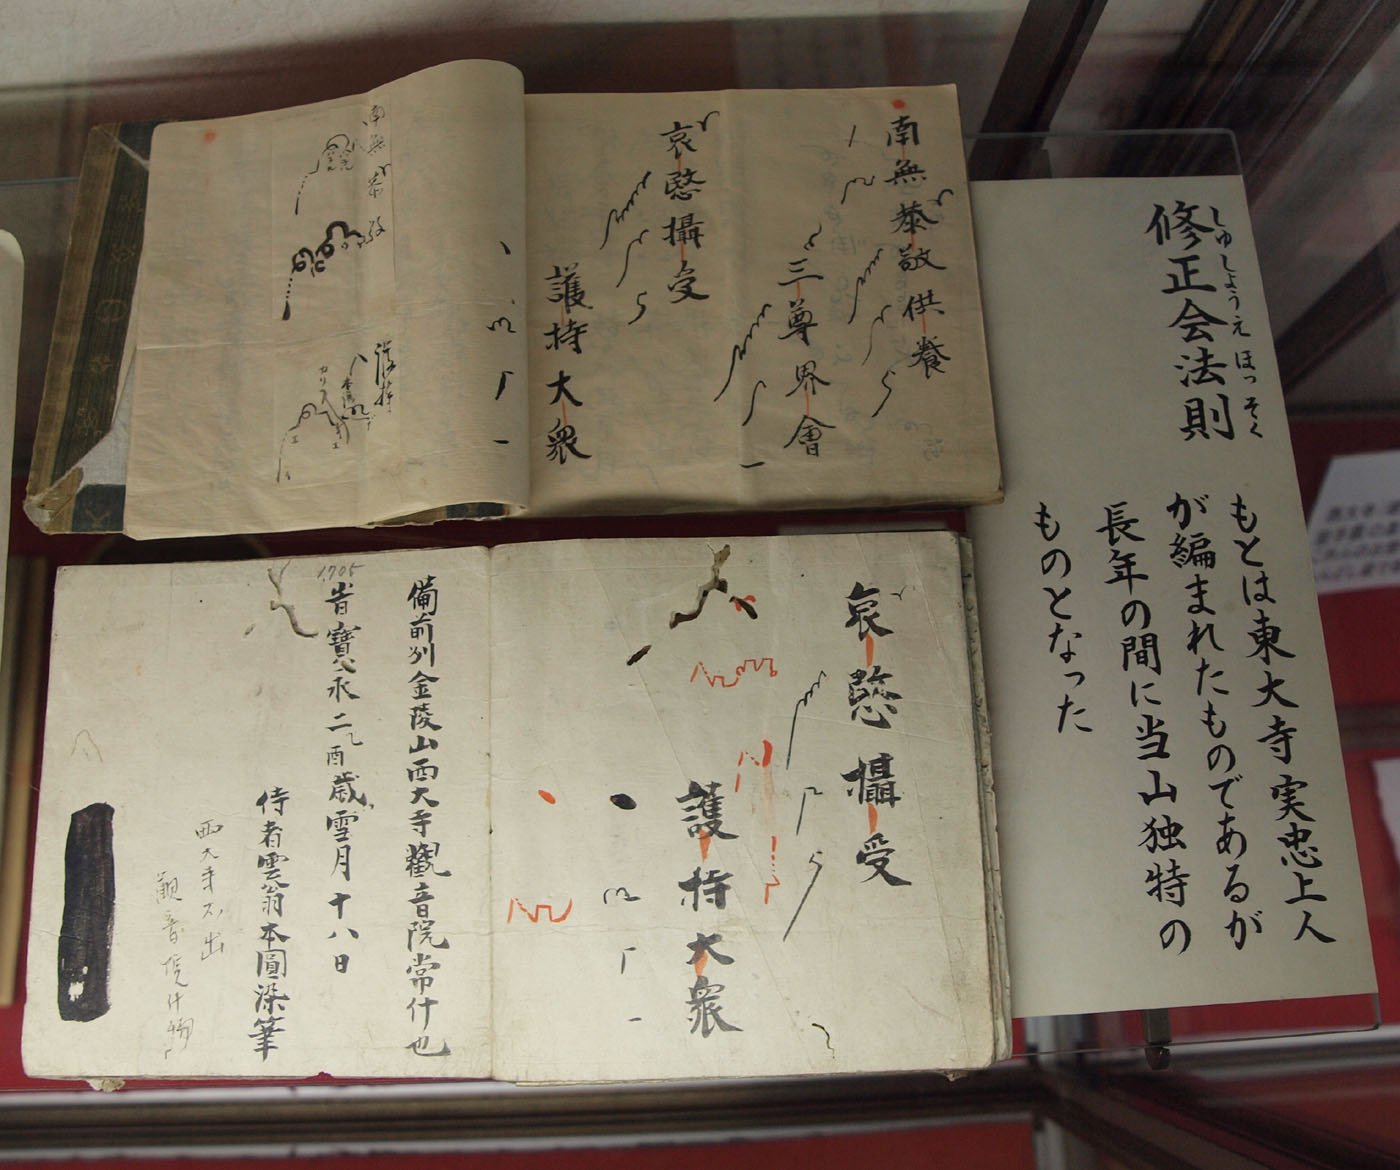 修正会法則
しゅしょうえ ほっそく
もとは東大寺実忠上人
が編まれたものであるが
長年の間に当山独特の
ものとなった
南無恭敬供養
三尊界會
哀愍攝受
護持大衆
南無恭敬
護持
哀愍攝受
護持大衆
備前州金陵山西大寺觀音院常什也
1705
旹寶永二乙酉歳雪月十八日
侍者雲翁本圓染筆
西大寺不出
観音院什物